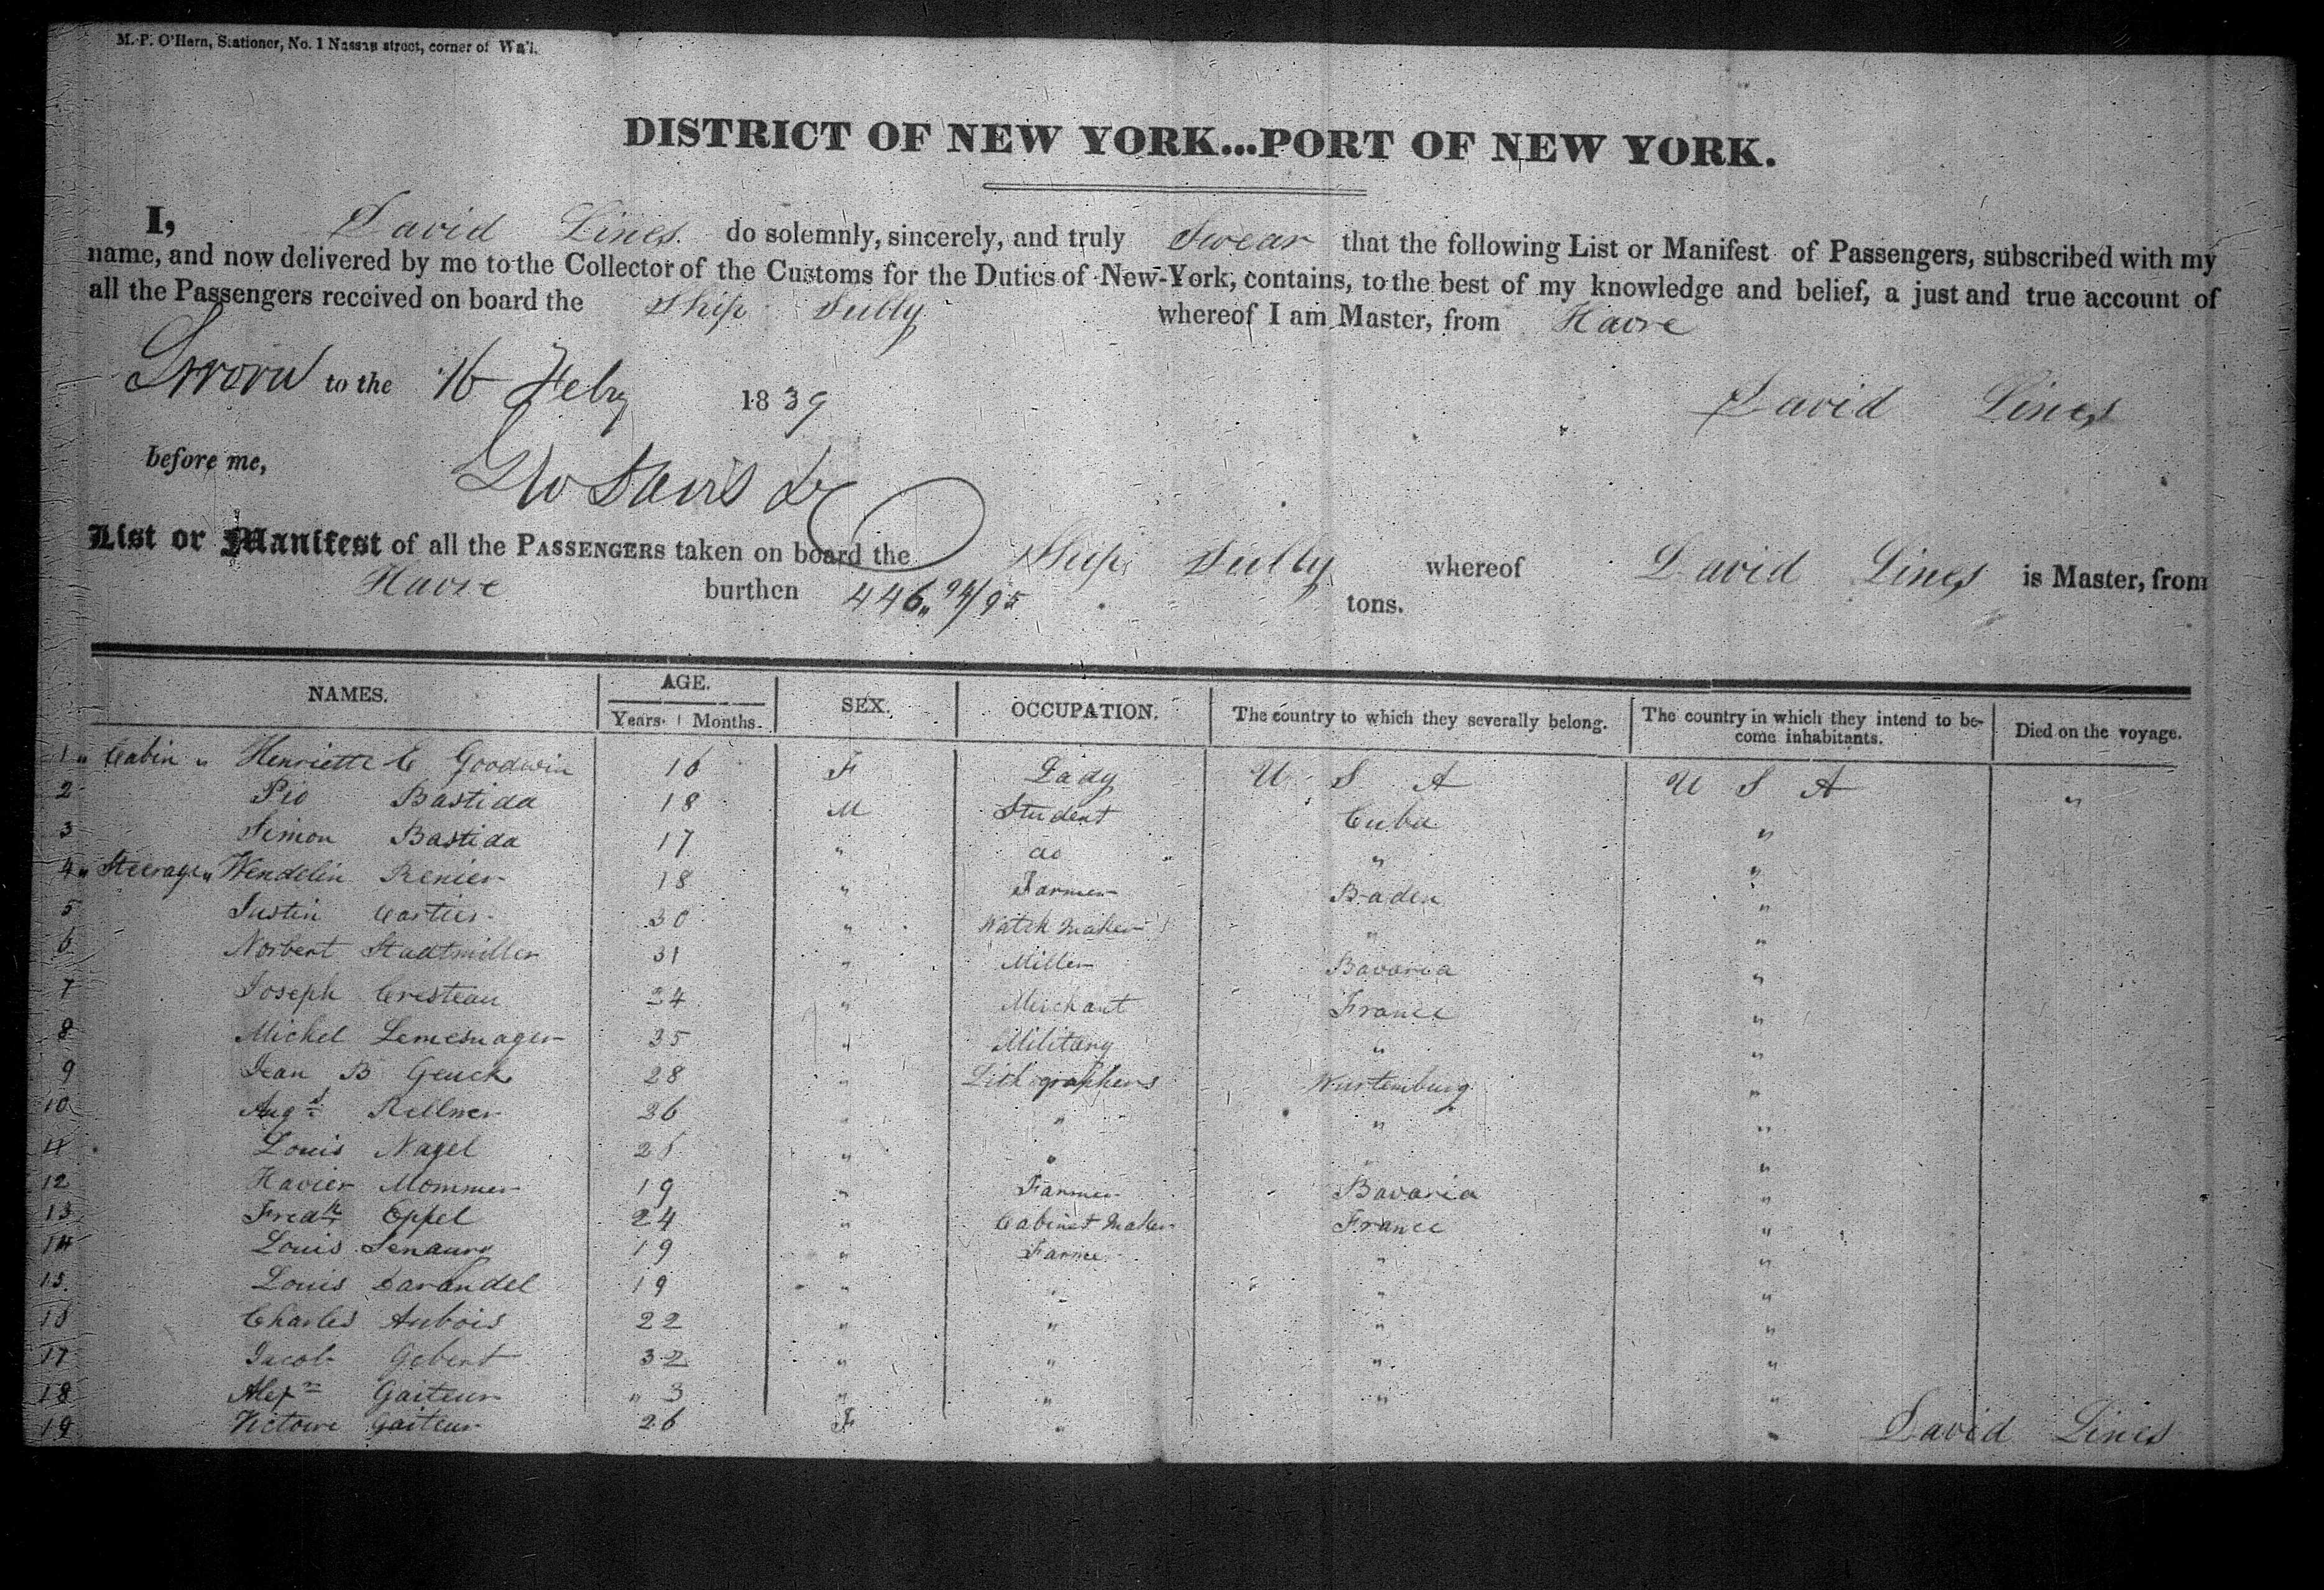 M. P. O'Hern, Stationer, No. 1 Nassau street, corner of Wa'l.
DISTRICT OF NEW YORK...PORT OF NEW YORK.
I, David Lines do solemnly, sincerely, and truly Swear that the following List or Manifest of Passengers, subscribed with my
name, and now delivered by me to the Collector of the Customs for the Duties of New-York, contains, to the best of my knowledge and belief, a just and true account of
all the Passengers received on board the Ship Sully whereof I am Master, from Havre
Sworn to the 16 Feby 1839 David Lines
before me,
List or Manifest of all the PASSENGERS taken on board the Ship Sully whereof David Lines is Master, from
Havre burthen 446,, 94/95 tons.
NAMES. AGE. SEX. OCCUPATION. The country to which they severally belong. The country in which they intend to be- Died on the voyage.
Years. Months. come inhabitants.
1 " Cabin " Henriette C Goodwin 16 F Lady U S A U S A "
2 Pio Bastida 18 M Student Cuba "
3 Simon Bastida 17 " do " "
4 " Steerage " Wendelin Renier 18 " Farmer Baden "
5 Justin Cartier 30 " Watch Maker " "
6 Norbert Stadtmiller 31 " Miller Bavaria "
7 Joseph Cresteau 24 " Merchant France "
8 Michel Lemesnager 35 " Military " "
9 Jean B Geuck 28 " Lithographers Wurtemburg "
10 Augt Kellner 26 " " " "
11 Louis Nagel 25 " " " "
12 Xavier Mommer 19 " Farmer Bavaria "
13 Fredk Eppel 24 " Cabinet Maker France "
14 Louis 19 " Farmer " "
15 Louis Darandel 19 " " " "
16 Charles Aubois 22 " " " "
17 Jacob Gebert 32 " " " "
18 Alexr Gaiteur " 3 " " " "
19 Victoire Gaiteur 26 F " "
David Lines